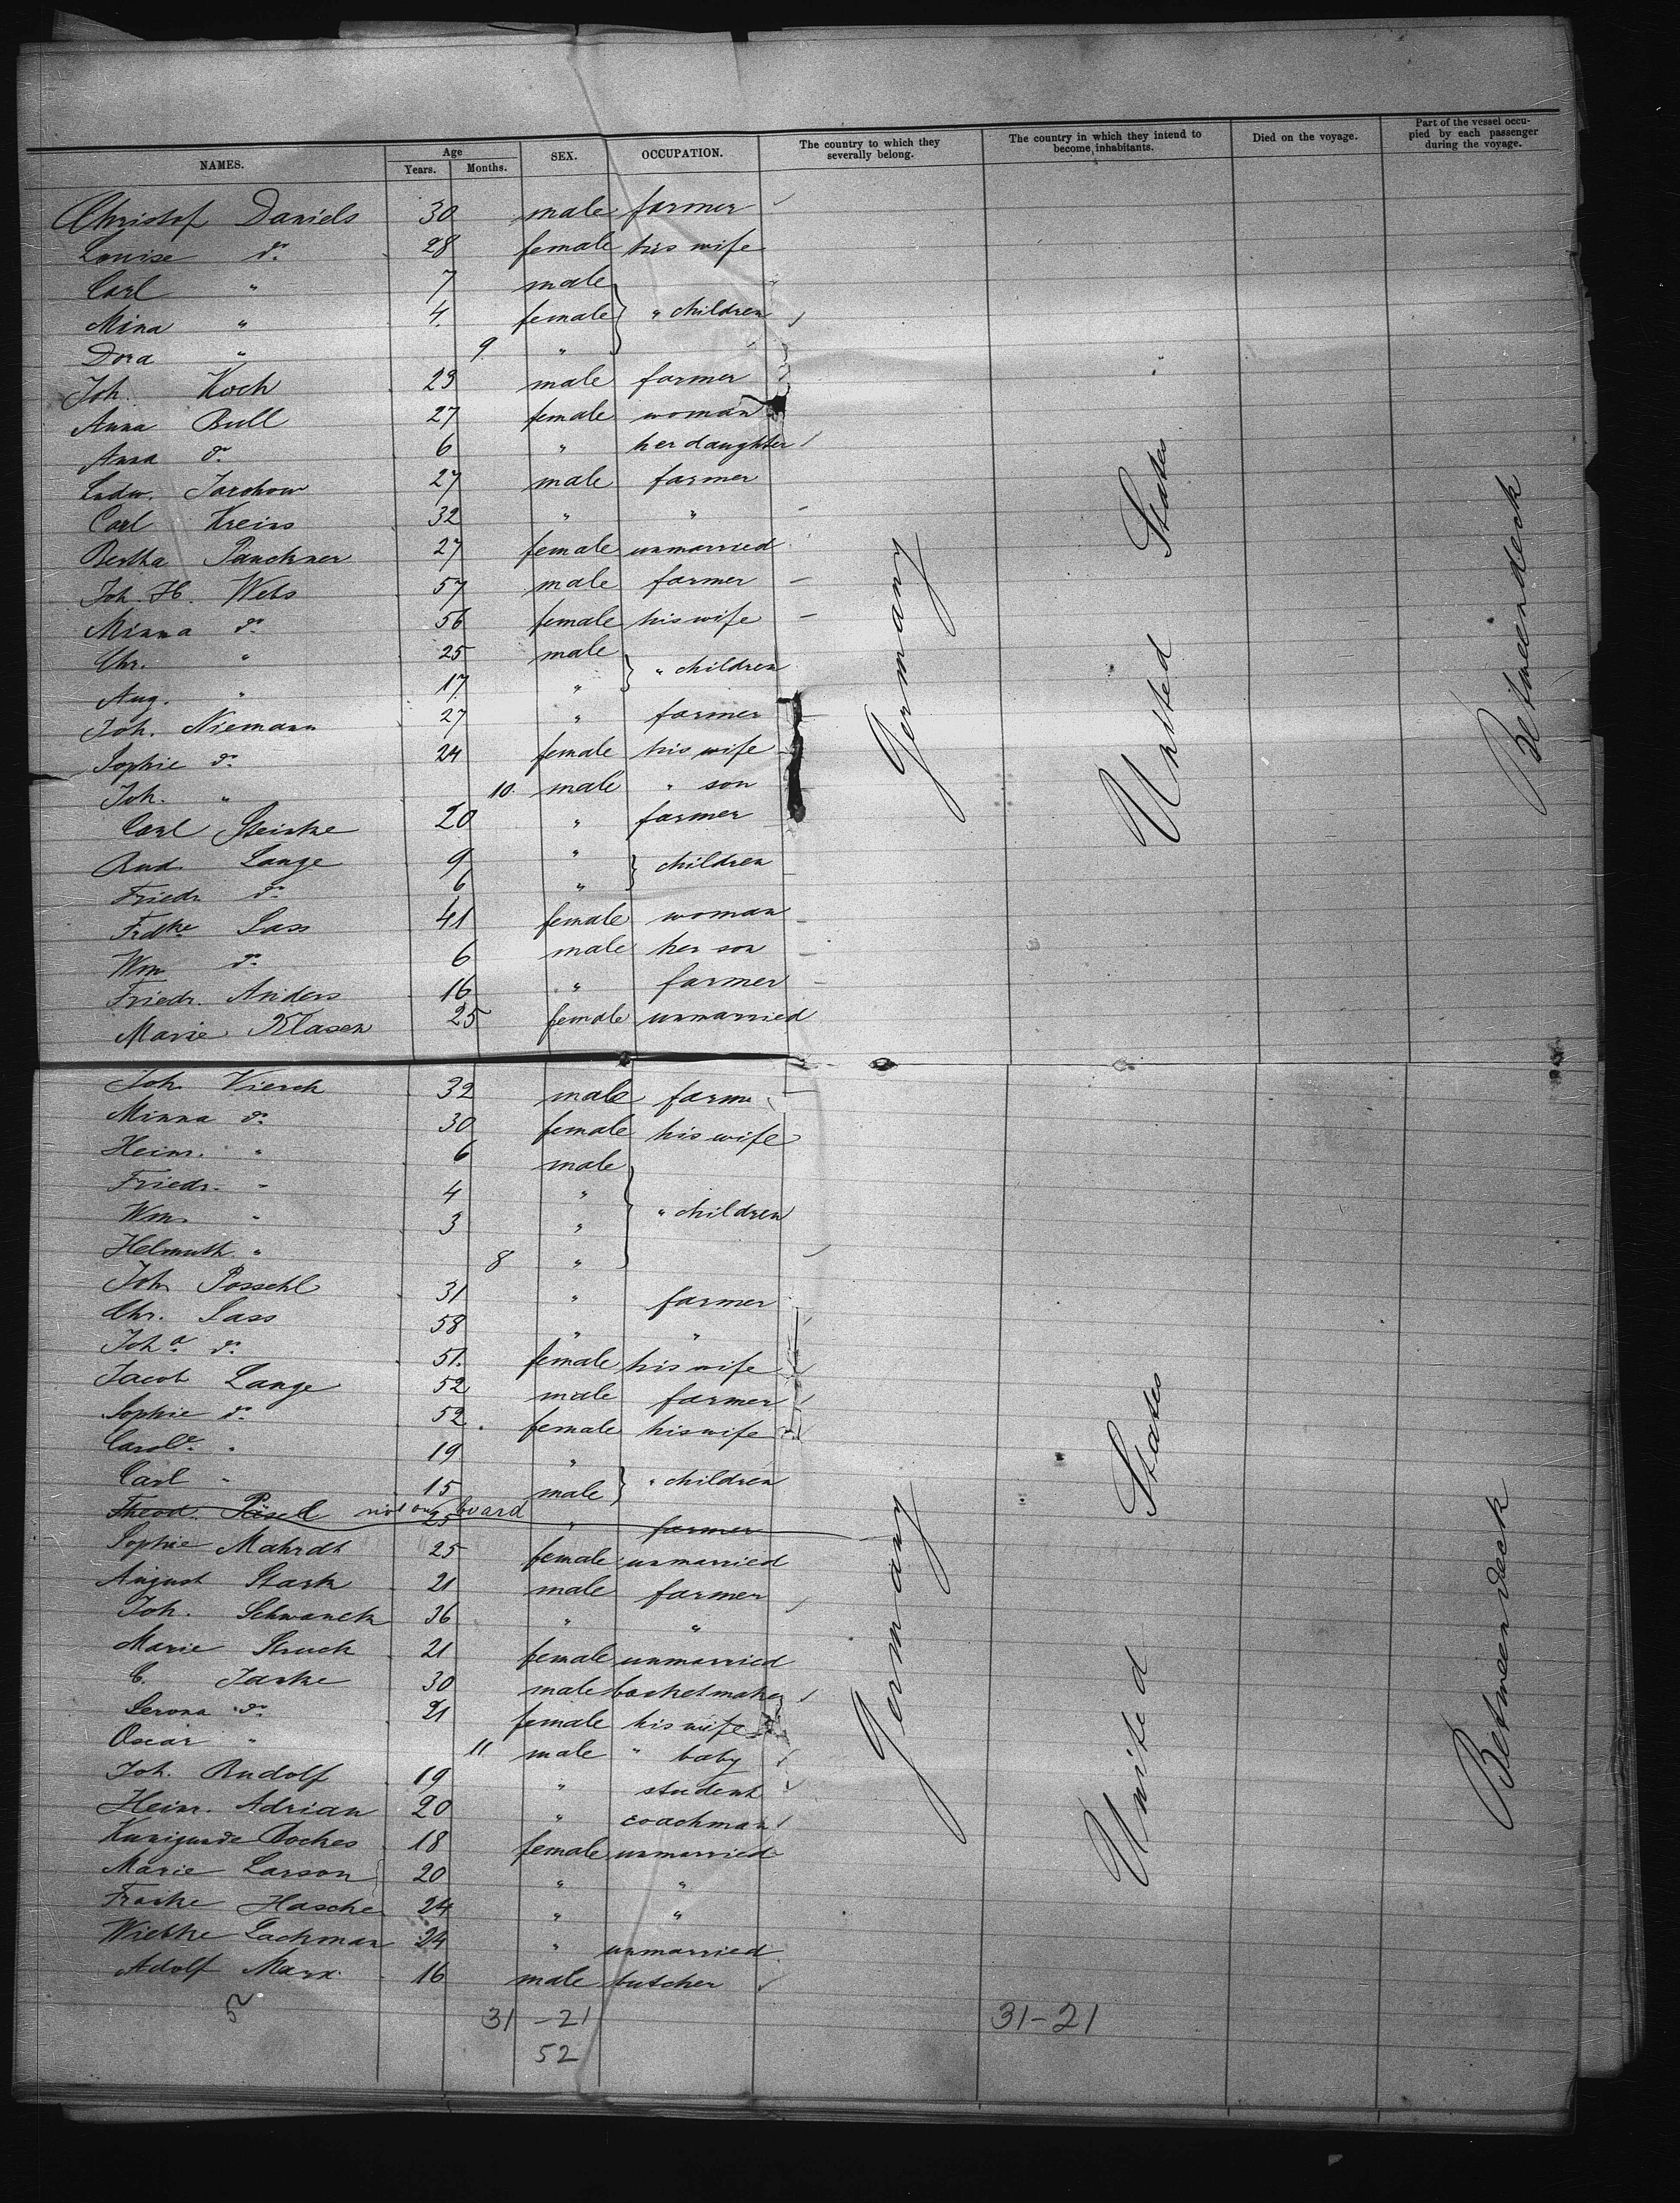 NAMES. Age Years. Months. SEX. OCCUPATION. The country to which they severally belong. The country in which they intend to become inhabitants. Died on the voyage. Part of the vessel occupied by each passenger during the voyage.
Christof Daniels 30 male farmer
Louise do 28 female his wife
Carl " 7 male
Mina " 4 female } " children
Dora " 9 "
Joh. Koch 23 male farmer
Anna Bull 27 female woman
Anna do 6 " her daughter
Ludw. Jarchow 27 male farmer
Carl Kreins 32 " "
Bertha Panckner 27 female unmarried
Joh. H. Wels 57 male farmer
Minna do 56 female his wife
Chr. " 25 male
Aug. " 17 " } " children
Joh. Niemann 27 " farmer
Sophie do 24 female his wife
Joh. " 10 male " son
Carl Steinke 20 " farmer
Rud. Lange 9 " } children
Friedr. do 6 "
Frdke Lass 41 female woman
Wm do 6 male her son
Friedr. Anders 16 " farmer
Marie Klasen 25 female unmarried
Germany United States Betweendeck
Joh. Vierck 32 male farm
Minna do 30 female his wife
Heinr. " 6 male
Friedr. " 4 "
Wm. " 3 " } " children
Helmuth " 8 "
Joh. Posschl 31 " farmer
Chr. Lass 58 " "
Joha do 51 female his wife
Jacob Lange 52 male farmer
Sophie do 52 female his wife
Carole " 19 "
Carl " 15 male } " children
Theod. not on board 25 " farmer
Sophie Mahrdt 25 female unmarried
August Stark 21 male farmer
Joh. Schwanck 36 " "
Marie Struck 21 female unmarried
C. Jaske 30 male basketmaker
do 21 female his wife
Oscar " 11 male " baby
Joh. Rudolf 19 " student
Heinr. Adrian 20 " coachman
Kunigunde Boches 18 female unmarried
Marie Larson 20 " "
Hasche 24 " "
Wiebke Lachman 24 " unmarried
Adolf Marx 16 male butcher
Germany United States Betweendeck
31 - 21 31-21
52